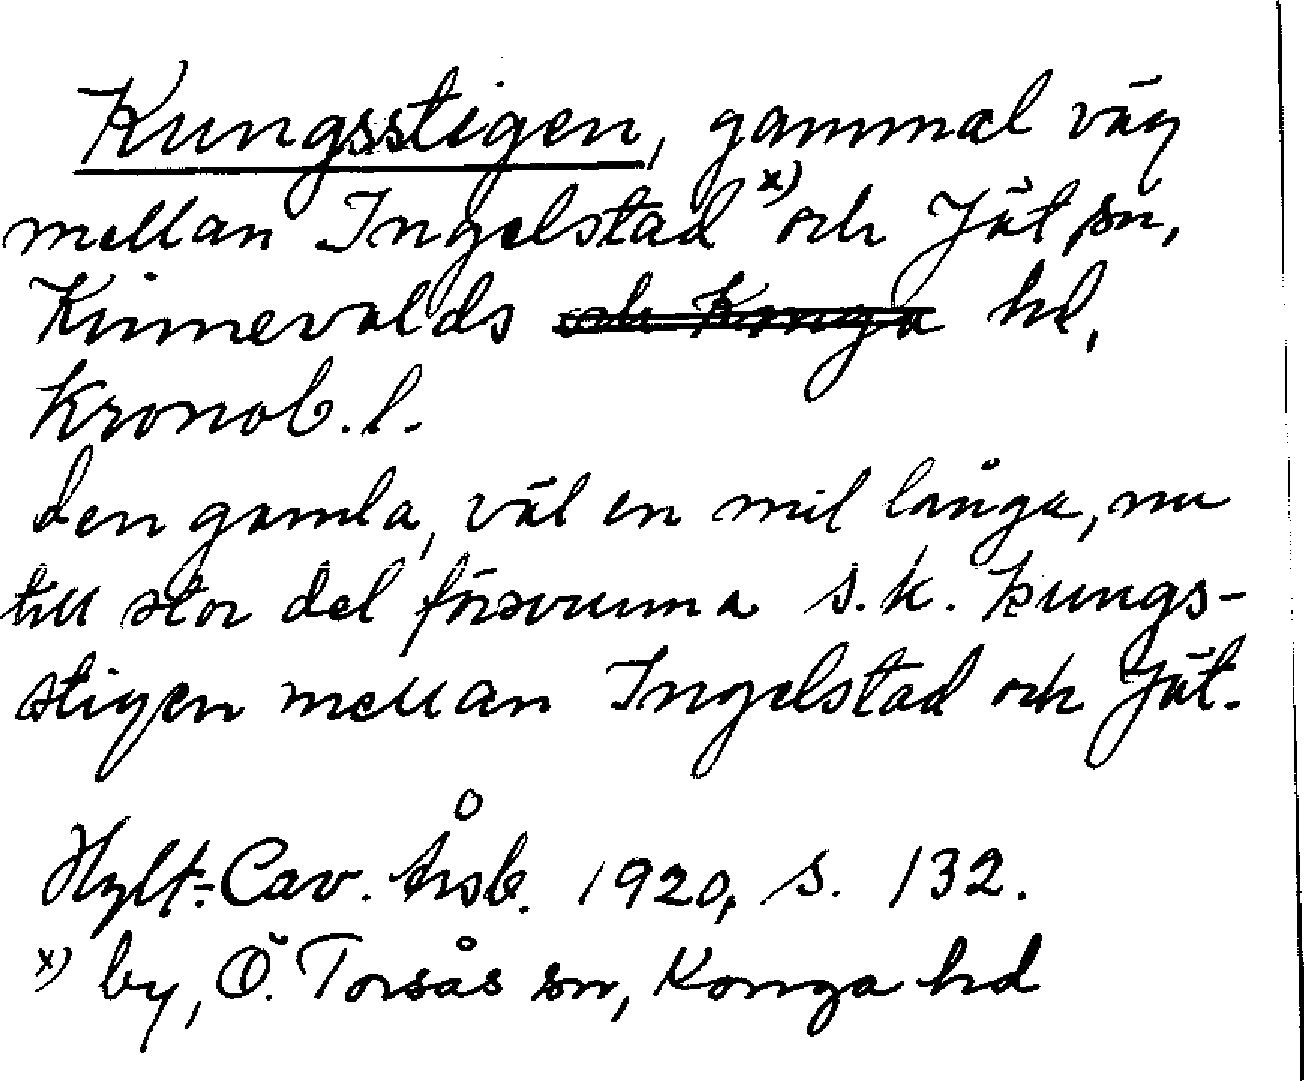 Kungsstigen, gammal väg
mellan Ingelstad x) och Jät sn,
Kinnevalds och Konga hd,
Kronob. l.
den gamla, väl en mil långa, nu
till stor del försvunna s.k. kungs-
stigen mellan Ingelstad och Jät.
Hylt-Cav. Årsb. 1920, s. 132.
x) by, Ö. Torsås sn, Konga hd